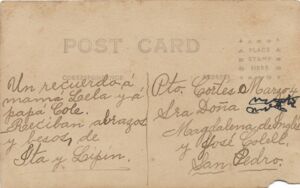 POST CARD
PLACE
STAMP
HERE
CORRESPONDENCE
ADDRESS
Un recuerdo á
mamá Lela y á
papá Cole.
Reciban abrazos
y besos, de
Ita y Lipin.
Pto. Cortes Marzo 4
Sra Doña
Magdalena de Inglés
y José Colell.
San Pedro.